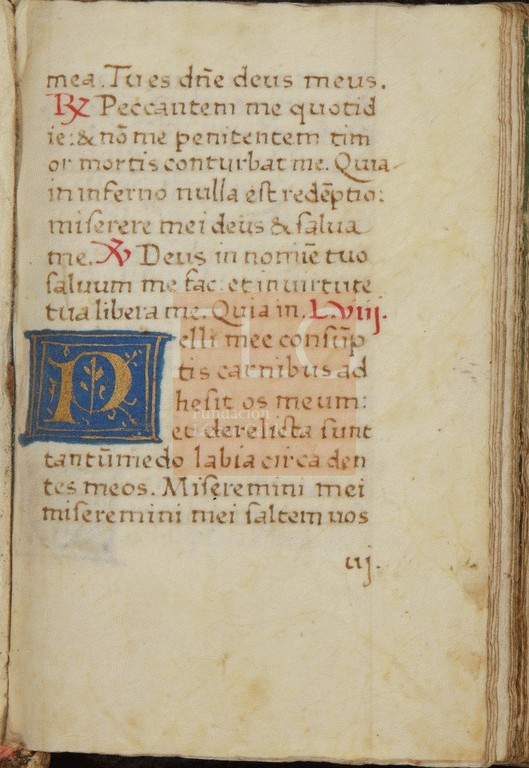 mea. Tu es dñe deus meus.
℟ Peccantem me quotid
ie: & nõ me penitentem tim
or mortis conturbat me. Quia
in inferno nulla est redẽptio:
miserere mei deus & salua
me. ℣ Deus in nomiẽ tuo
saluum me fac: et in uirtute
tua libera me. Quia in. L. viij.
Pelli mee consũp
tis carnibus ad
hesit os meum:
et derelicta sunt
tantũmedo labia circa den
tes meos. Miseremini mei
miseremini mei saltem uos
uj.
Fundación